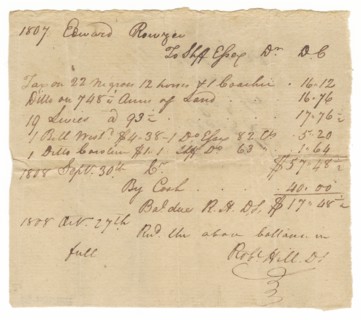 1807 Edward Rowzee
To Shff Essex Dr D C
Tax on 22 Negroes 12 horses & 1 Coachee . 16.12
Ditto on 748 Acres of Land . 16.76
19 Levies @ 93 . 17.76
1 Bill West $4.38 - 1 Do Essex 82 5.20
1 Ditto Caroline $1.1 Shff Do 63 1.64
$57.48
1808 Sept. 30th Cr.
By Cash . . 40.00
Bal due R. H. DS. $17.48
1808 Oct. 27th Recd. the above ballance in
full Robt. Hill. DS